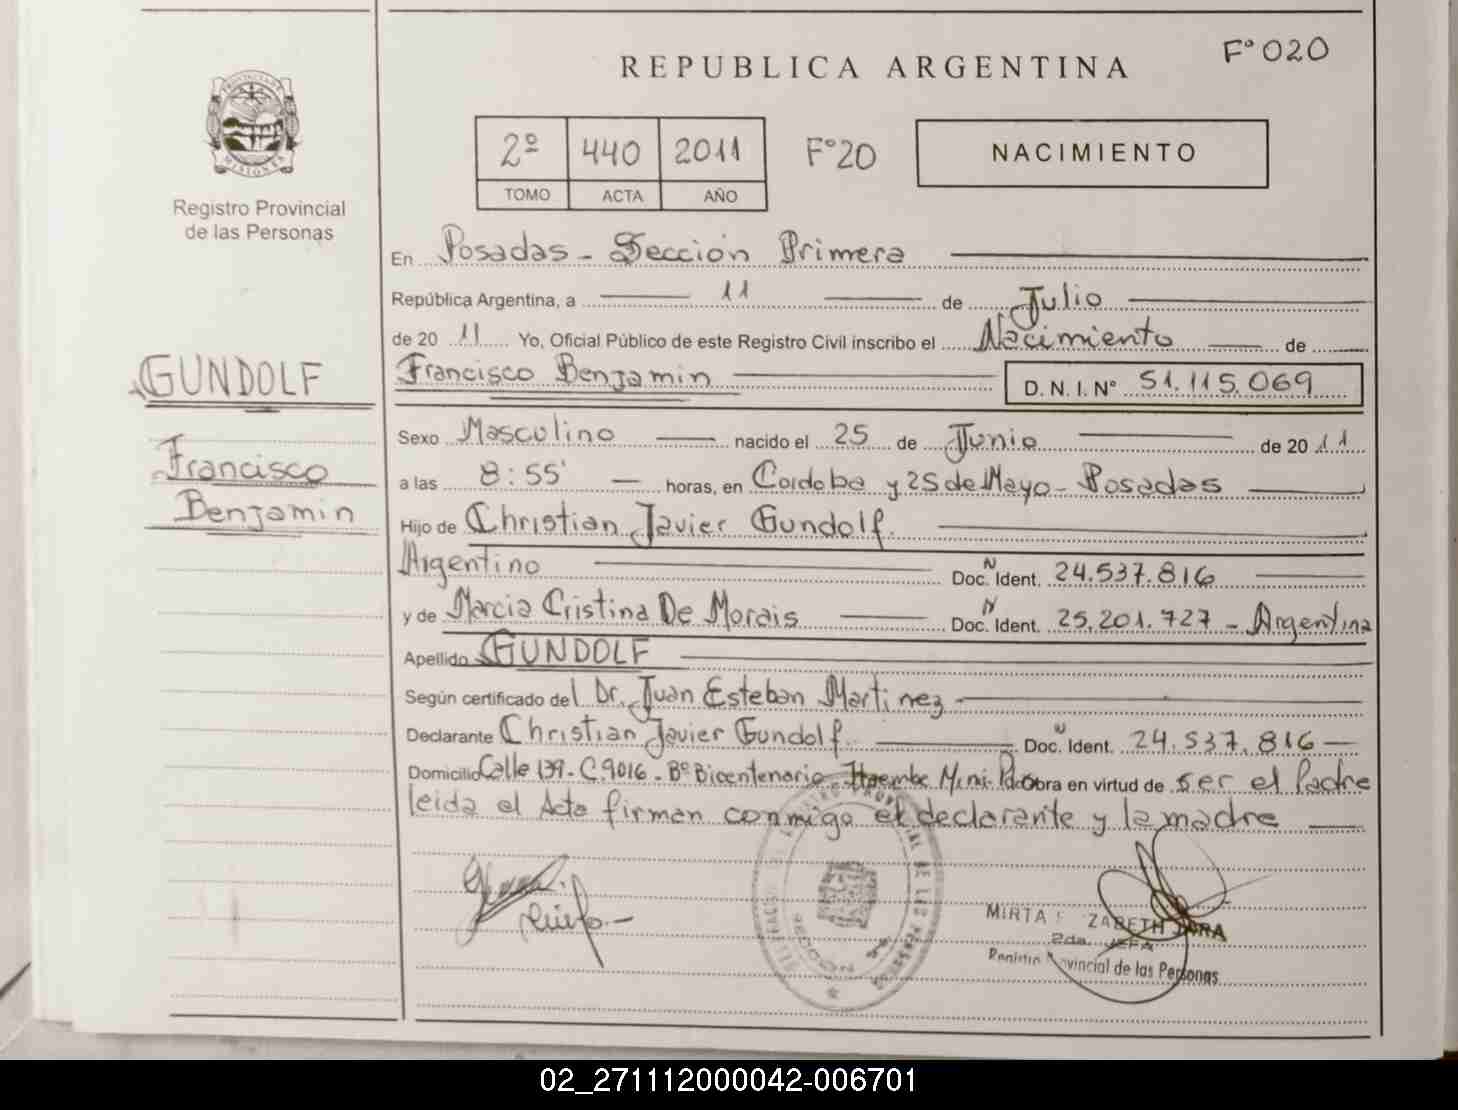 F° 020
REPUBLICA ARGENTINA
PROVINCIA DE MISIONES
Registro Provincial
de las Personas
2º 440 2011 F°20
TOMO ACTA AÑO
NACIMIENTO
En Posadas - Sección Primera
República Argentina, a 11 de Julio
de 20 11 Yo, Oficial Público de este Registro Civil inscribo el Nacimiento de
Francisco Benjamin D. N. I. N° 51.115.069
GUNDOLF
Francisco
Benjamin
Sexo Masculino nacido el 25 de Junio de 20 11
a las 8:55' horas, en Cordoba y 25 de Mayo - Posadas
Hijo de Christian Javier Gundolf.
Argentino Doc. N Ident. 24.537.816
y de Marcia Cristina De Morais Doc. N Ident. 25.201.727 - Argentina
Apellido GUNDOLF
Según certificado del Dr. Juan Esteban Martinez -
Declarante Christian Javier Gundolf. Doc. N Ident. 24.537.816 —
Domicilio Calle 139 - C. 9016 - B° Bicentenario Itaembe Mini - Pdas Obra en virtud de ser el Padre
leida el Acta firman conmigo el declarante y la madre
REGISTRO PROVINCIAL DE LAS PERSONAS
MIRTA ZABETH JARA
2da. JEFA
Registro Provincial de las Personas
02_271112000042-006701